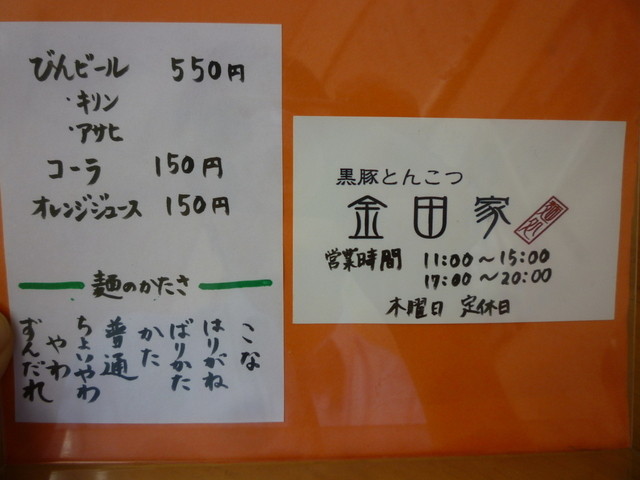 びんビール 550円
・キリン
・アサヒ
コーラ 150円
オレンジジュース 150円
麺のかたさ
こな
はりがね
ばりかた
かた
普通
ちょいやわ
やわ
ずんだれ
黒豚とんこつ
金田家
麺処
営業時間 11:00～15:00
17:00～20:00
木曜日 定休日